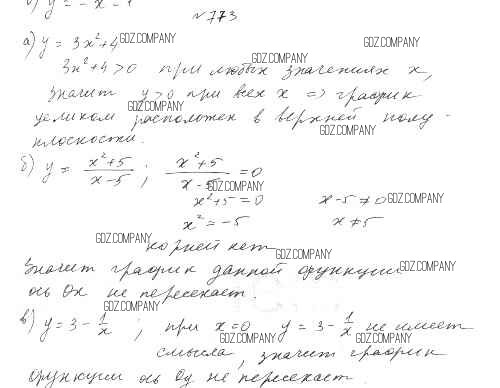 б) y = - x - 1
№ 773
а) y = 3x²+4 GDZ.COMPANY GDZ.COMPANY
3x²+4>0 при любых значениях x, GDZ.COMPANY
значит y>0 при всех x => график GDZ.COMPANY
целиком расположен в верхней полу- GDZ.COMPANY
плоскости.
б) y = x²+5 / x-5 ; x²+5 / x-5 = 0 GDZ.COMPANY
x²+5 = 0 x-5 ≠ 0 GDZ.COMPANY
x² = -5 x ≠ 5
GDZ.COMPANY корней нет GDZ.COMPANY
Значит график данной функции GDZ.COMPANY
ось Ox не пересекает.
GDZ.COMPANY
в) y = 3 - 1/x ; при x=0 y = 3 - 1/x не имеет
GDZ.COMPANY GDZ.COMPANY
смысла, значит график
функции ось Oy не пересекает.